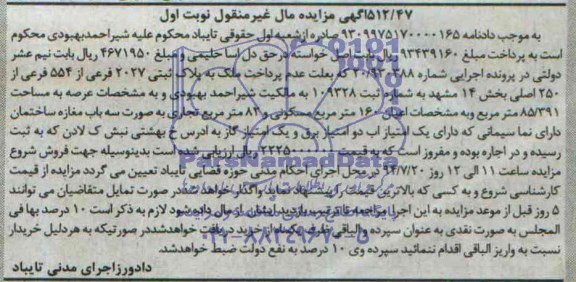 ۵۱۲/۴۷آگهی مزایده مال غیرمنقول نوبت اول
به موجب دادنامه ۹۳۰۹۹۷۵۱۷۰۰۰۰۱۶۵ صادره ازشعبه اول حقوقی تایباد محکوم علیه شیراحمدبهبودی محکوم
است به پرداخت مبلغ ۹۳۴۳۹۱۶۰ ریال بابت اصل خواسته درحق دل اسا حلیمی و مبلغ ۴۶۷۱۹۵۰ ریال بابت نیم عشر
دولتی در پرونده اجرایی شماره که بعلت عدم پرداخت ملک به پلاک ثبتی ۲۰۲۷ فرعی از ۵۵۴ فرعی از
۲۵۰ اصلی بخش ۱۴ مشهد به شماره ثبت ۱۰۹۳۲۸ به مالکیت شیراحمد بهبودی و به مشخصات عرصه به مساحت
۸۵/۳۹۱ متر مربع وبه مشخصات اعیان ۱۶۰ متر مربع مسکونی و ۸۴ متر مربع تجاری به صورت سه باب مغازه ساختمان
دارای نما سیمانی که دارای یک امتیاز اب دو امتیاز برق و یک امتیاز گاز به ادرس خ بهشتی نبش ک لادن که به ثبت
رسیده و در اجاره بوده و مفروز است که به قیمت ریال ارزیابی شده است بدینوسیله جهت فروش شروع
مزایده ساعت ۱۱ الی ۱۲ روز ۹۴/۷/۲۰ در محل اجرای احکام مدنی حوزه قضایی تایباد تعیین می گردد مزایده از قیمت
کارشناسی شروع و به کسی که بالاترین قیمت را پیشنهاد نماید واگذار خواهد شددر صورت تمایل متقاضیان می توانند
۵ روز قبل از موعد مزایده به این اجرا مراجعه تا ترتیب بازدید ایشان از مال داده شود لازم به ذکر است ۱۰ درصد بها فی
المجلس به صورت نقدی به عنوان سپرده والباقی ظرف یکماه از خرید دریافت خواهدشددر صورتیکه به هردلیل خریدار
نسبت به واریز الباقی اقدام ننمائید سپرده وی ۱۰ درصد به نفع دولت ضبط خواهدشد.
دادورزاجرای مدنی تایباد
ParsNamadData
۰۲۱-۸۸۳۴۹۶۷۰-۵